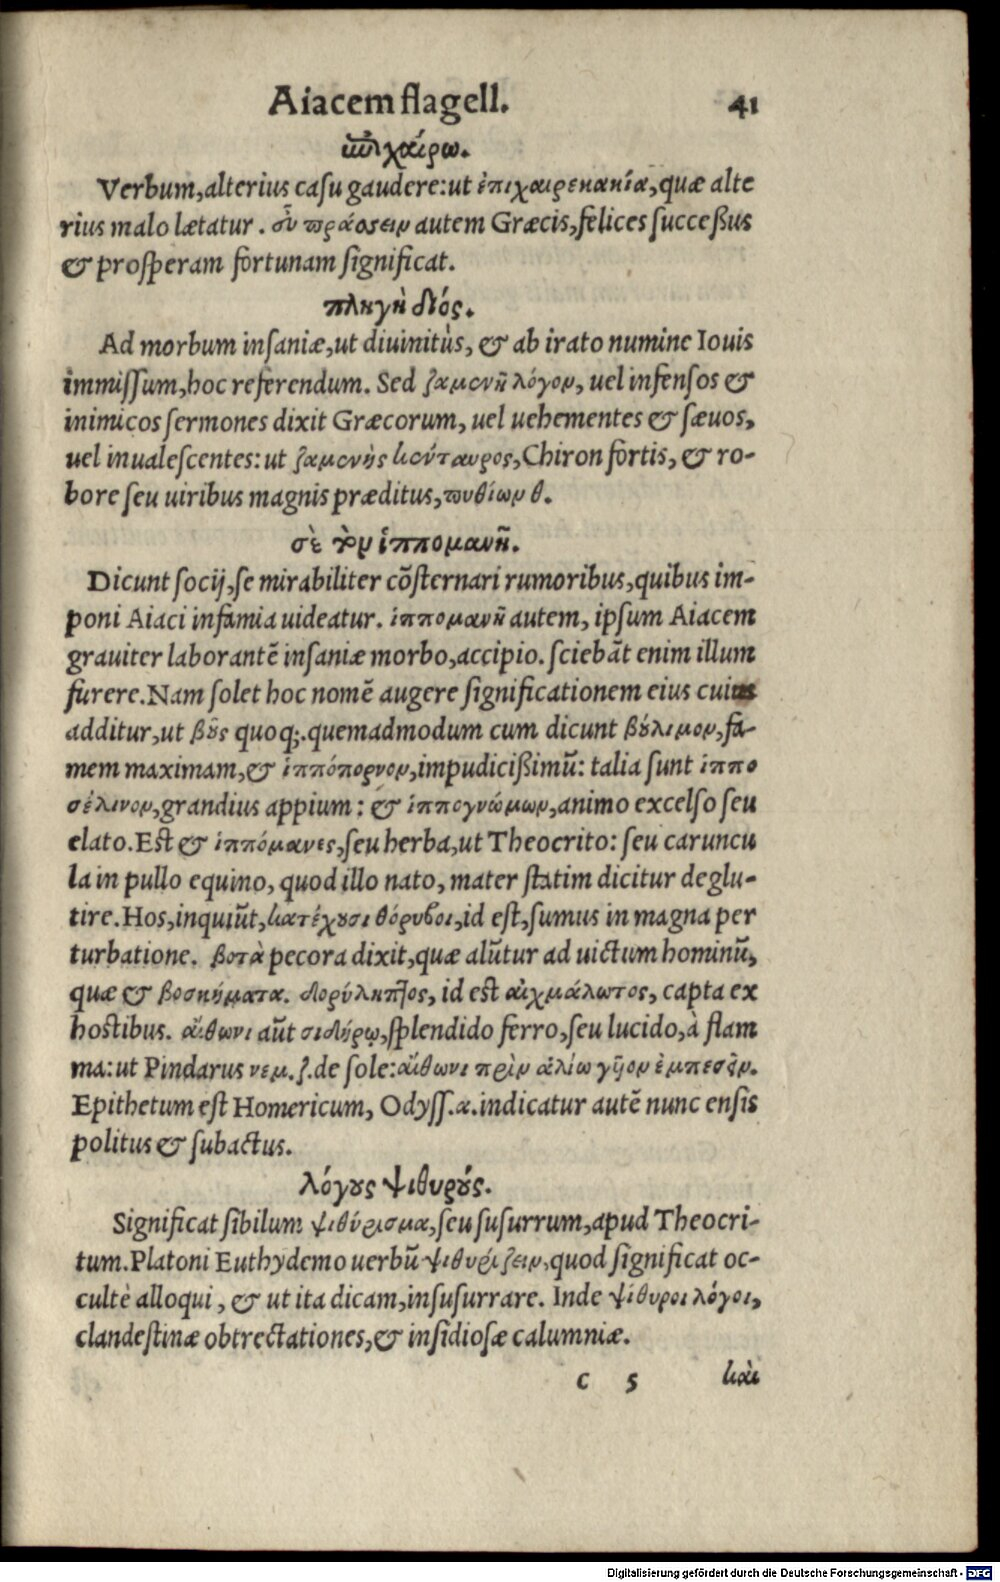 Aiacem flagell. 41
ἐπιχαίρω.
Verbum, alterius casu gaudere: ut ἐπιχαιρεκακία, quæ alte
rius malo lætatur. εὖ πράσσειν autem Græcis, felices successus
& prosperam fortunam significat.
πληγὴ διός.
Ad morbum insaniæ, ut diuinitùs, & ab irato numine Iouis
immissum, hoc referendum. Sed ζαμενῆ λόγον, uel infensos &
inimicos sermones dixit Græcorum, uel uehementes & sæuos,
uel inualescentes: ut ζαμενὴς κένταυρος, Chiron fortis, & ro-
bore seu uiribus magnis præditus, πυθίων θ.
σὲ τὸν ἱππομανῆ.
Dicunt socij, se mirabiliter cōsternari rumoribus, quibus im-
poni Aiaci infamia uideatur. ἱππομανῆ autem, ipsum Aiacem
grauiter laborantē insaniæ morbo, accipio. sciebāt enim illum
furere. Nam solet hoc nomē augere significationem eius cuius
additur, ut βοῦς quoq;. quemadmodum cum dicunt βούλιμον, fa-
mem maximam, & ἱππόπορνον, impudicissimū: talia sunt ἱππο
σέλινον, grandius appium: & ἱππογνώμων, animo excelso seu
elato. Est & ἱππόμανες, seu herba, ut Theocrito: seu caruncu
la in pullo equino, quod illo nato, mater statim dicitur deglu-
tire. Hos, inquiūt, κατέχουσι θόρυβοι, id est, sumus in magna per
turbatione. βοτὰ pecora dixit, quæ alūtur ad uictum hominū,
quæ & βοσκήματα. δορύληπτος, id est αἰχμάλωτος, capta ex
hostibus. αἴθωνι aūt σιδήρῳ, splendido ferro, seu lucido, à flam
ma: ut Pindarus νεμ. ζ. de sole: αἴθωνι πρὶν ἁλίω γῆον ἐμπεσεῖν.
Epithetum est Homericum, Odyss. α. indicatur autē nunc ensis
politus & subactus.
λόγους ψιθυρούς.
Significat sibilum ψιθύρισμα, seu susurrum, apud Theocri-
tum. Platoni Euthydemo uerbū ψιθυρίζειν, quod significat oc-
cultè alloqui, & ut ita dicam, insusurrare. Inde ψίθυροι λόγοι,
clandestinæ obtrectationes, & insidiosæ calumniæ.
c 5 καὶ
Digitalisierung gefördert durch die Deutsche Forschungsgemeinschaft - DFG